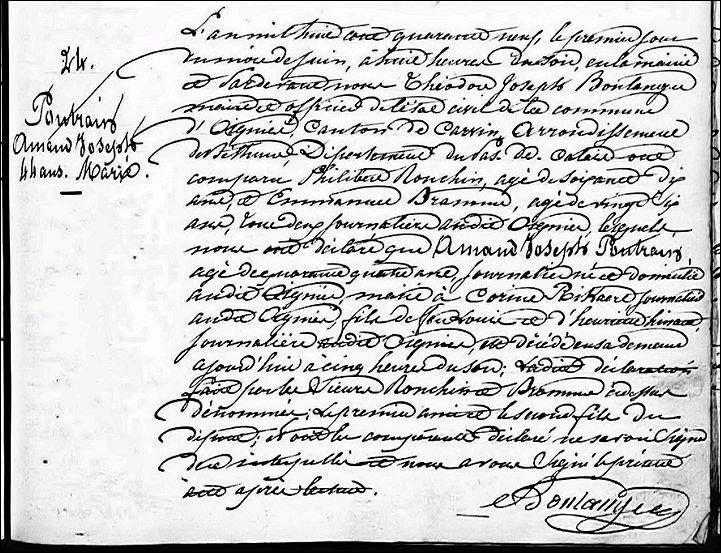 24.
Poutrain
Amand Joseph
44 ans. Marié.
L'an mil huit cent quarante neuf, le premier jour
du mois de juin, à huit heures du soir, en la mairie
et pardevant nous Théodore Joseph Boulanger
maire et officier de l'état civil de la commune
d'Oignies, canton de Carvin, Arrondissement
de Béthune, Département du Pas-de-Calais ont
comparu Philibert Ronchin, agé de soixante dix
ans, et Emmanuel Bramme, agé de vingt six
ans, tous deux journaliers audit Oignies, lesquels
nous ont déclaré que Amand Joseph Poutrain,
agé de quarante quatre ans, journalier né et domicilié
audit Oignies, marié à Corine journalière
audit Oignies, fils de feu Louis et d'henriette
journalière audit Oignies, est décédé en sa demeure
ajourd'hui à cinq heures du soir; Ladite déclaration
faite par les Sieurs Ronchin et Bramme ci dessus
dénommés; le premier ami et le second fils du
défunt; et ont les comparants déclaré ne savoir signer
de ce interpellés et nous avons signé le présent
acte après lecture.
Boulanger